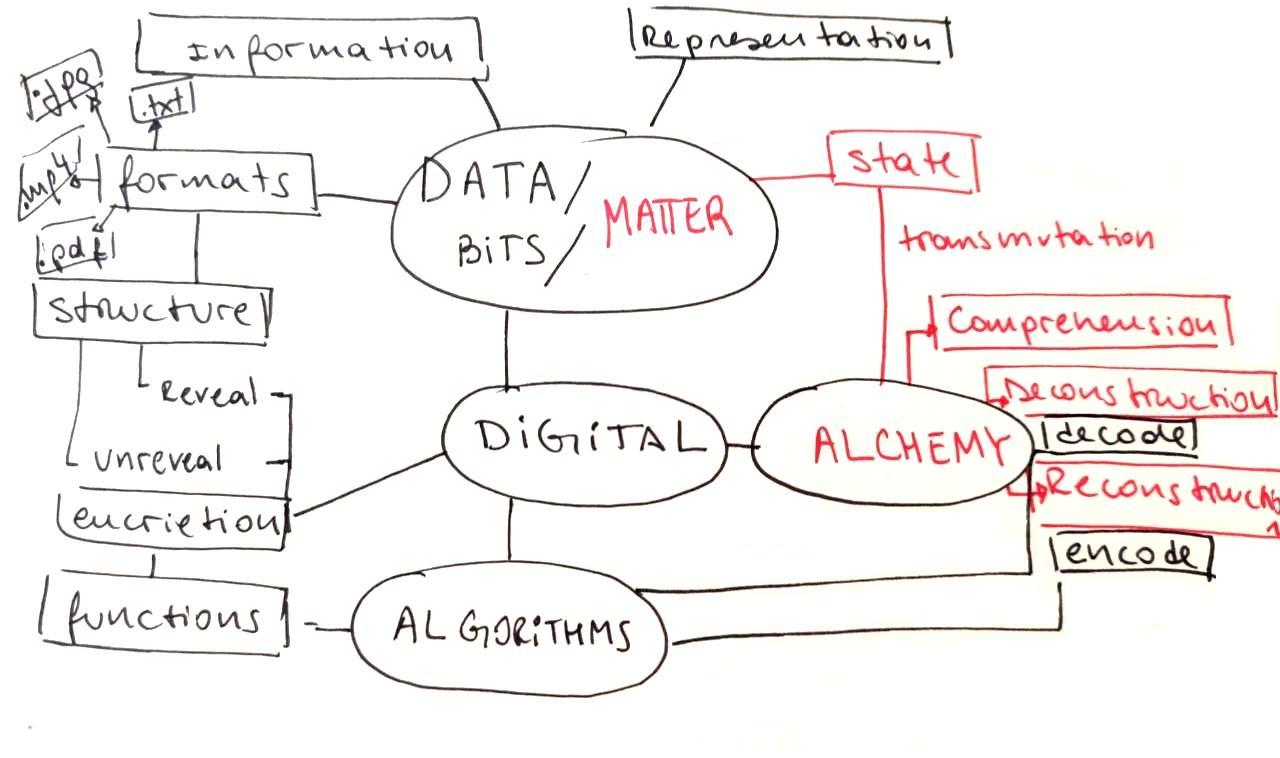 Information
Representation
.jpg
.txt
.mp4
formats
.pdf
DATA/
BiTS/
MATTER
state
transmutation
structure
Comprehension
Reveal
Deconstruction
unreveal
DiGiTAL
ALCHEMY
decode
Reconstruction
encrietion
encode
functions
ALGORiTHMS